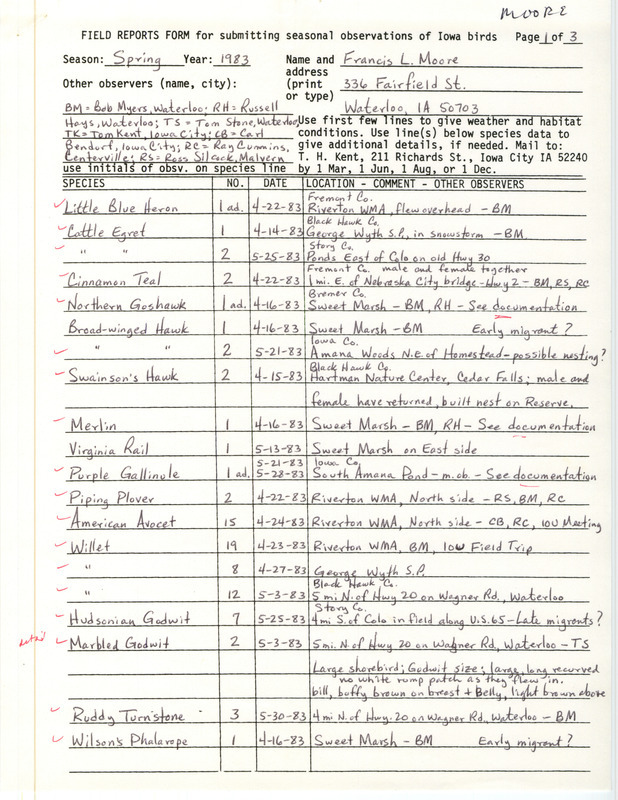 MOORE
FIELD REPORTS FORM for submitting seasonal observations of Iowa birds Page 1 of 3
Season: Spring Year: 1983 Name and Francis L. Moore
address
Other observers (name, city): (print 336 Fairfield St.
or type)
BM = Bob Myers, Waterloo; RH = Russell Waterloo, IA 50703
Hays, Waterloo; TS = Tom Stone, Waterloo Use first few lines to give weather and habitat
TK = Tom Kent, Iowa City; CB = Carl conditions. Use line(s) below species data to
Bendorf, Iowa City; RC = Ray Cummins, give additional details, if needed. Mail to:
Centerville; RS = Ross Silcock, Malvern T. H. Kent, 211 Richards St., Iowa City IA 52240
use initials of obsv. on species line by 1 Mar, 1 Jun, 1 Aug, or 1 Dec.
SPECIES NO. DATE LOCATION - COMMENT - OTHER OBSERVERS
Fremont Co.
Little Blue Heron 1 ad. 4-22-83 Riverton WMA, flew overhead - BM
Black Hawk Co.
Cattle Egret 1 4-14-83 George Wyth S.P., in snowstorm - BM
Story Co.
" " 2 5-25-83 Ponds East of Colo on old Hwy 30
Fremont Co. male and female together
Cinnamon Teal 2 4-22-83 1 mi. E. of Nebraska City bridge - Hwy 2 - BM, RS, RC
Bremer Co.
Northern Goshawk 1 ad. 4-16-83 Sweet Marsh - BM, RH - See documentation
Broad-winged Hawk 1 4-16-83 Sweet Marsh - BM Early migrant?
Iowa Co.
" " 2 5-21-83 Amana Woods N.E. of Homestead - possible nesting?
Black Hawk Co.
Swainson's Hawk 2 4-15-83 Hartman Nature Center, Cedar Falls; male and
female have returned, built nest on Reserve.
Merlin 1 4-16-83 Sweet Marsh - BM, RH - See documentation
Virginia Rail 1 5-13-83 Sweet Marsh on East side
5-21-83 Iowa Co.
Purple Gallinule 1 ad. 5-28-83 South Amana Pond - m.ob. - See documentation
Piping Plover 2 4-22-83 Riverton WMA, North side - RS, BM, RC
American Avocet 15 4-24-83 Riverton WMA, North side - CB, RC, IOU Meeting
Willet 19 4-23-83 Riverton WMA, BM, IOU Field Trip
" 8 4-27-83 George Wyth S.P.
Black Hawk Co.
" 12 5-3-83 5 mi N. of Hwy 20 on Wagner Rd., Waterloo
Story Co.
Hudsonian Godwit 7 5-25-83 4 mi S. of Colo in field along U.S. 65 - Late migrants?
Marbled Godwit 2 5-3-83 5 mi. N. of Hwy 20 on Wagner Rd, Waterloo - TS
Large shorebird; Godwit size; large, long recurved
no white rump patch as they flew in.
bill, buffy brown on breast + Belly, light brown above
Ruddy Turnstone 3 5-30-83 4 mi N. of Hwy. 20 on Wagner Rd., Waterloo - BM
Wilson's Phalarope 1 4-16-83 Sweet Marsh - BM Early migrant?